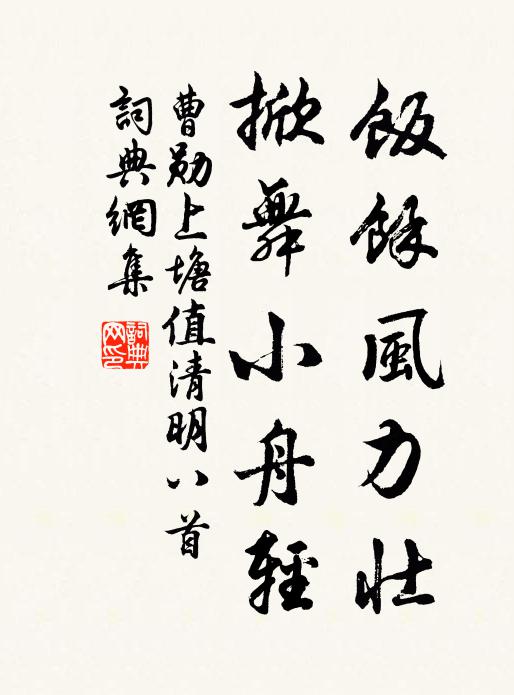 飯餘風力壯
掀舞小舟輕
曹勛上塘值清明八首
詞典網集
詞典網印